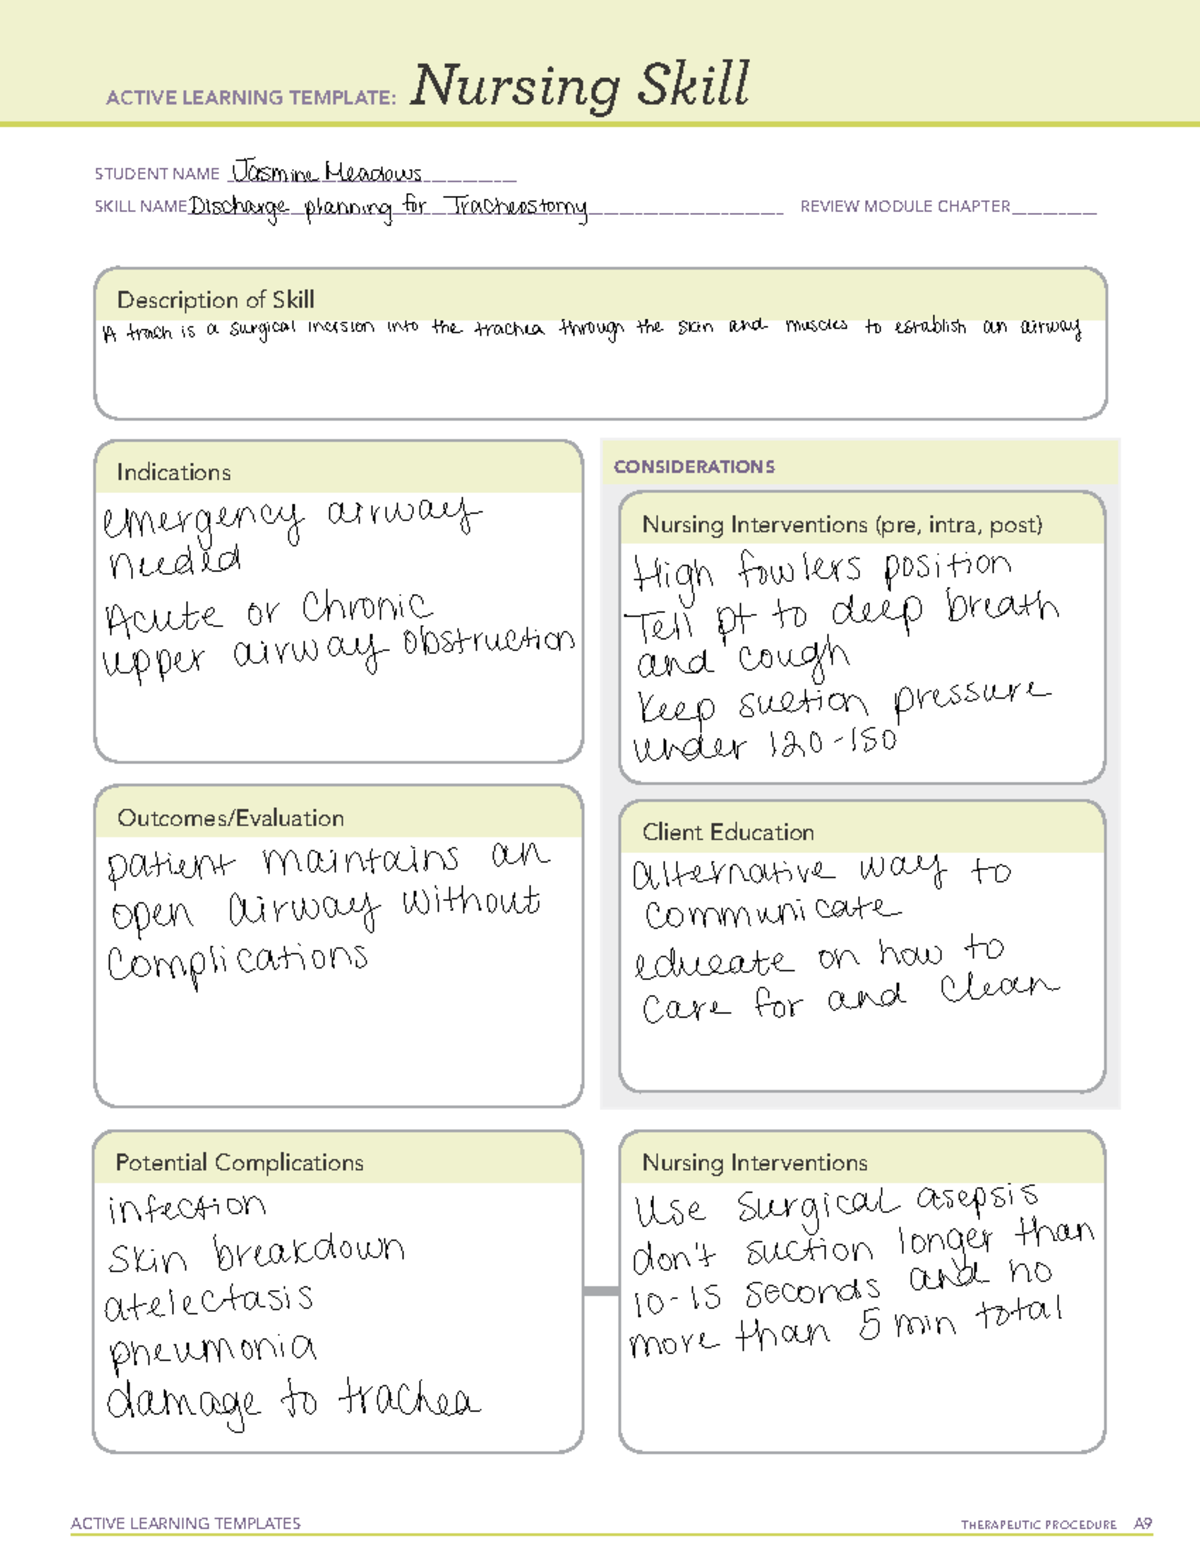 ACTIVE LEARNING TEMPLATE: Nursing Skill
STUDENT NAME Jasmine Meadows
SKILL NAME Discharge planning for Tracheostomy REVIEW MODULE CHAPTER
Description of Skill
A trach is a surgical incision into the trachea through the skin and muscles to establish an airway
Indications
emergency airway
needed
Acute or Chronic
upper airway obstruction
CONSIDERATIONS
Nursing Interventions (pre, intra, post)
High fowlers position
Tell pt to deep breath
and cough
Keep suction pressure
under 120-150
Outcomes/Evaluation
patient maintains an
open airway without
complications
Client Education
alternative way to
communicate
educate on how to
care for and clean
Potential Complications
infection
skin breakdown
atelectasis
pneumonia
damage to trachea
Nursing Interventions
Use surgical asepsis
don't suction longer than
10-15 seconds and no
more than 5 min total
ACTIVE LEARNING TEMPLATES THERAPEUTIC PROCEDURE A9